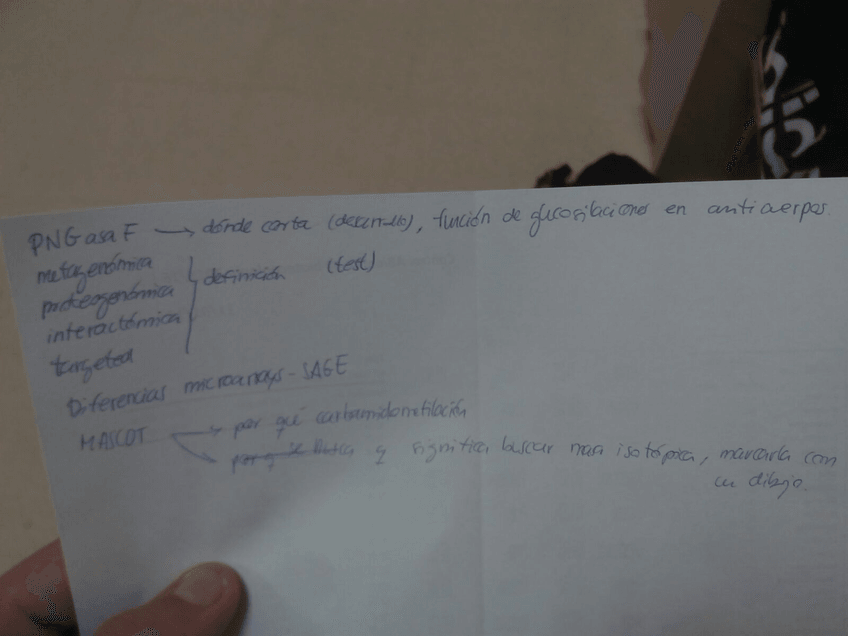 PNGasa F → dónde corta (desarrollo), función de glucosilaciones en anticuerpos.
metagenómica
proteogenómica } definición (test)
interactómica
targeted
Diferencias microarrays - SAGE
MASCOT → por qué carbamidometilación
→ q significa buscar masa isotópica, marcarla con
un dibujo.